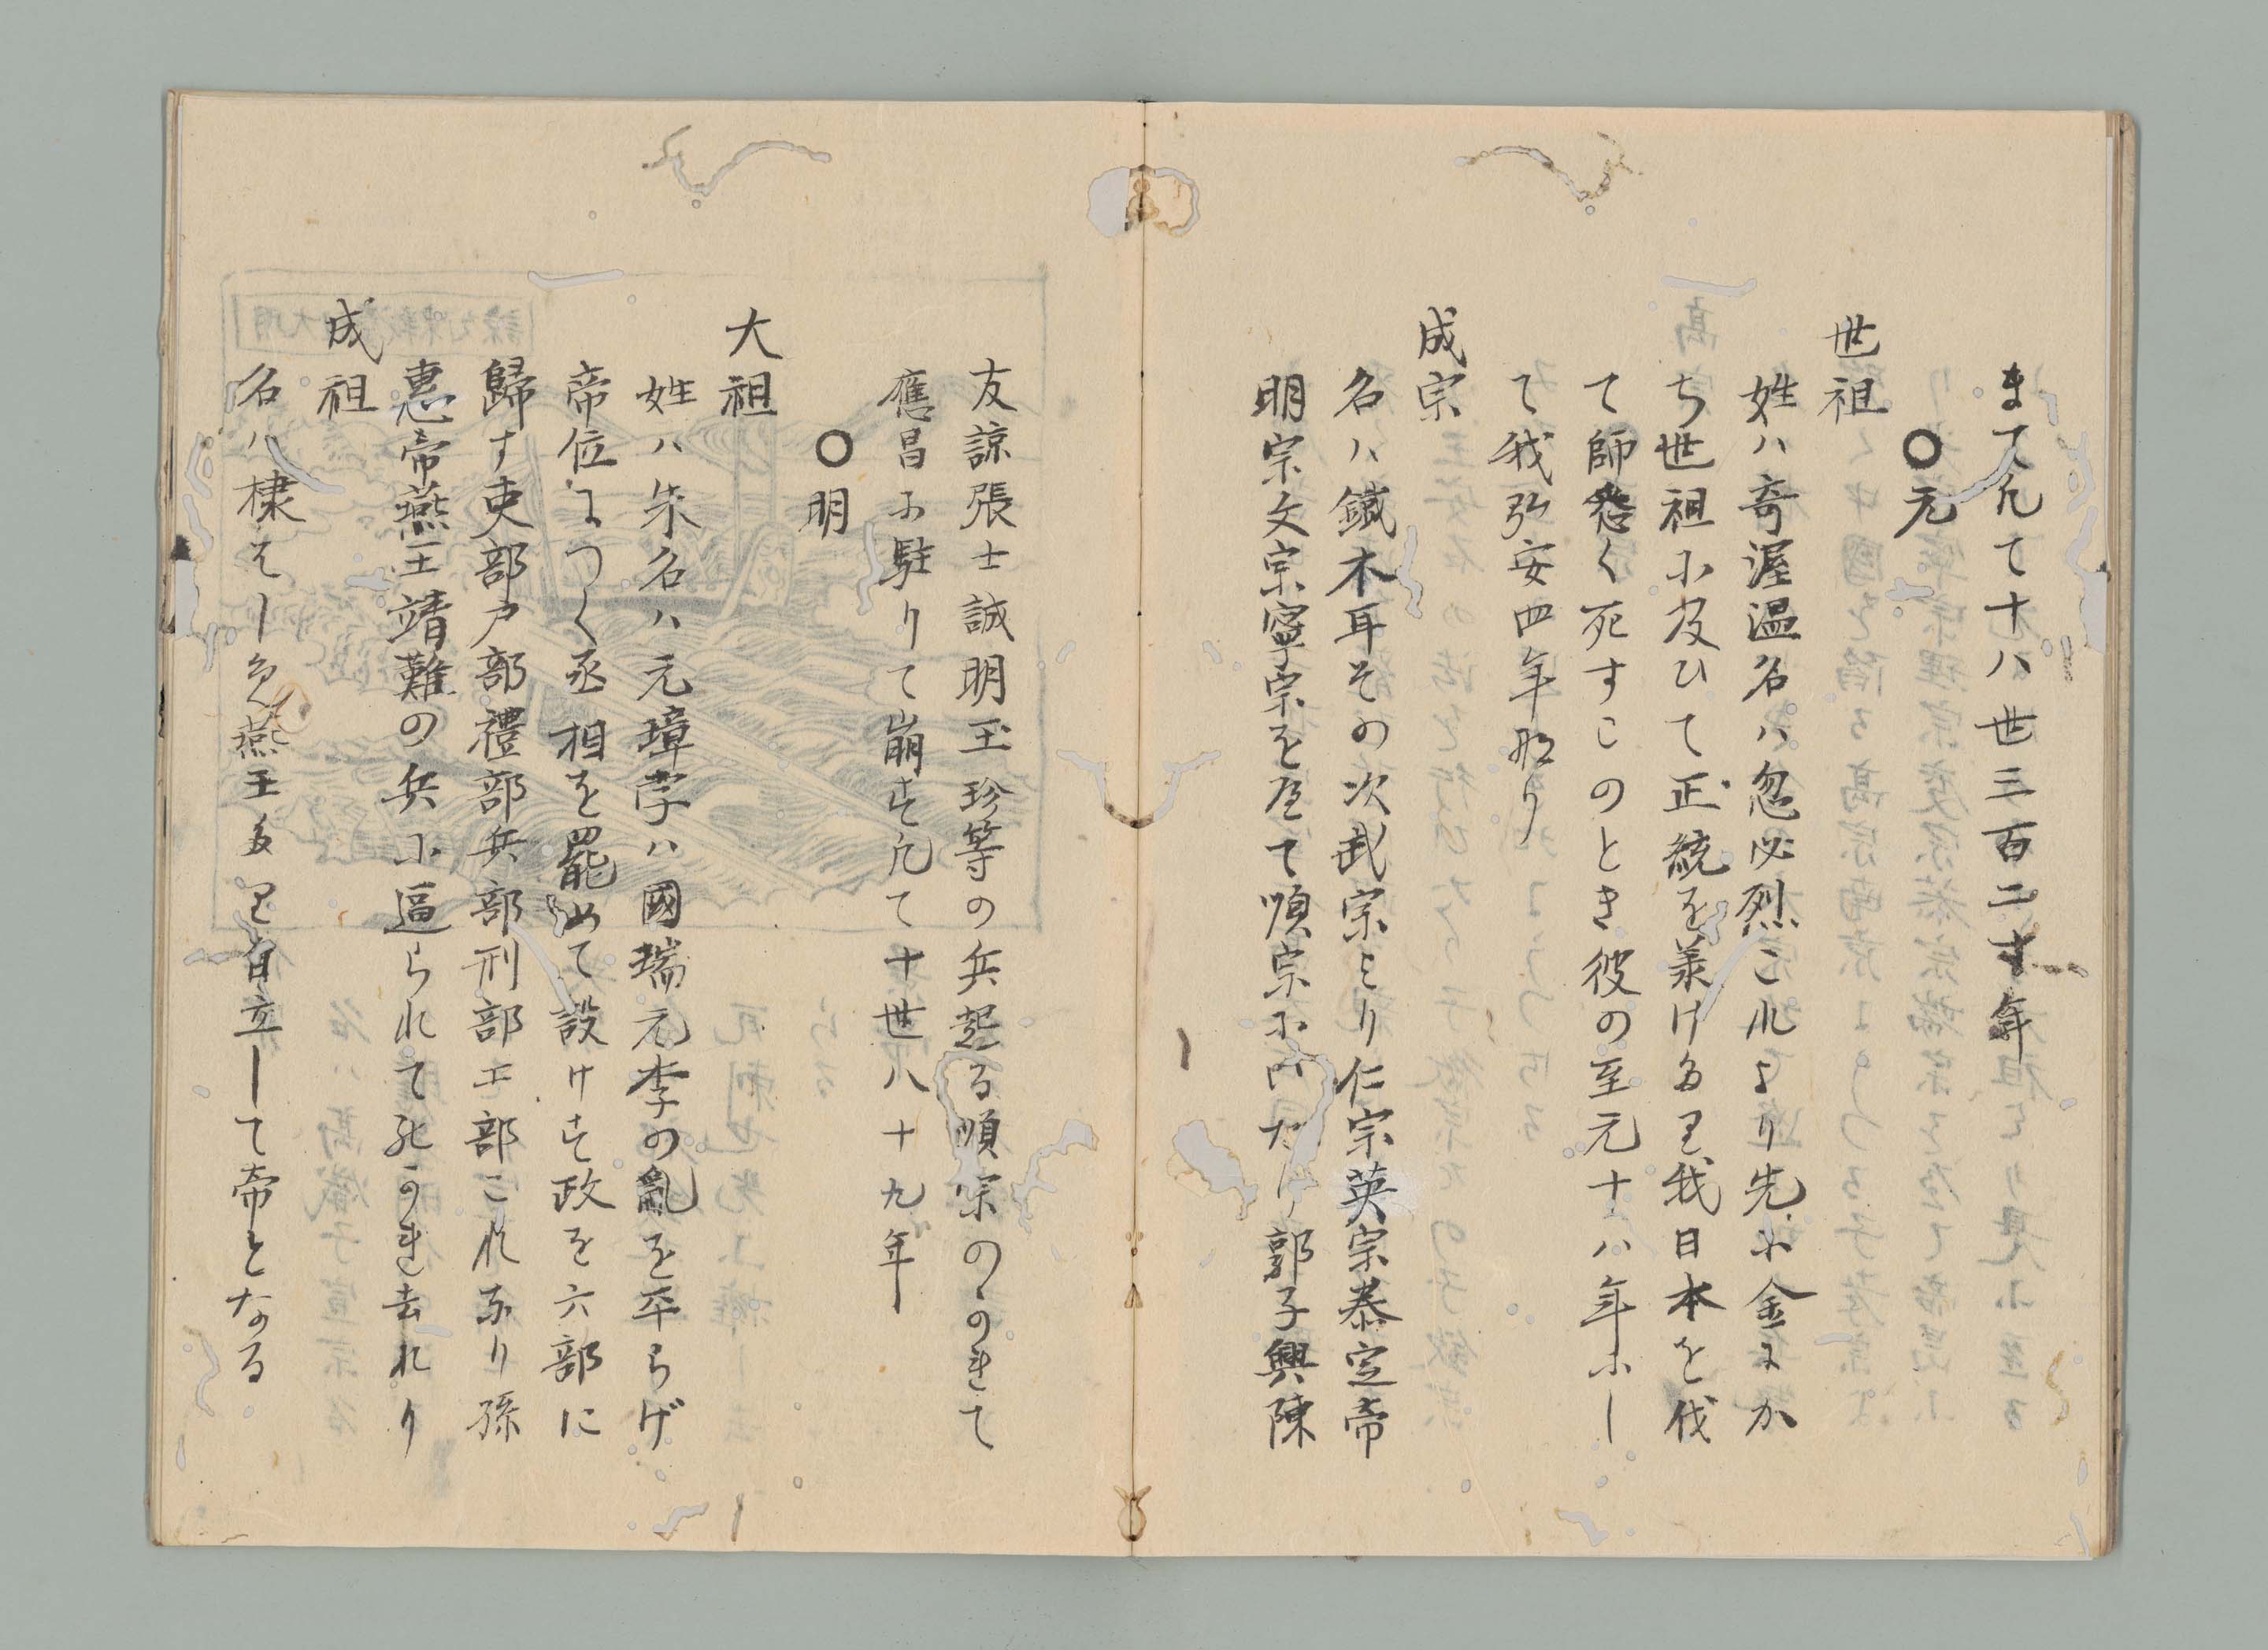 まて凡て十八世三百二十年
〇元
世祖
姓ハ奇渥温名ハ忽必烈これより先に金にか
ち世祖に及ひて正統を義けたり我日本を伐
て師悉く死すこのとき彼の至元十八年にし
て我弘安四年なり
成宗
名ハ鐵木耳その次武宗より仁宗英宗泰定帝
明宗文宗寧宗を歴て順宗に郭子興陳
友諒張士誠明玉珍等の兵起る順宗のかれて
應昌に駐りて崩す凡て十世八十九年
〇明
大祖
姓ハ朱名ハ元璋字ハ國瑞元季の亂を平らげ
帝位につく丞相を罷めて設けす政を六部に
歸す吏部戸部禮部兵部刑部工部これなり孫
惠帝燕王靖難の兵に逼られてのかれ去れり
成祖
名ハ棣そしめ燕王たり自立して帝となる